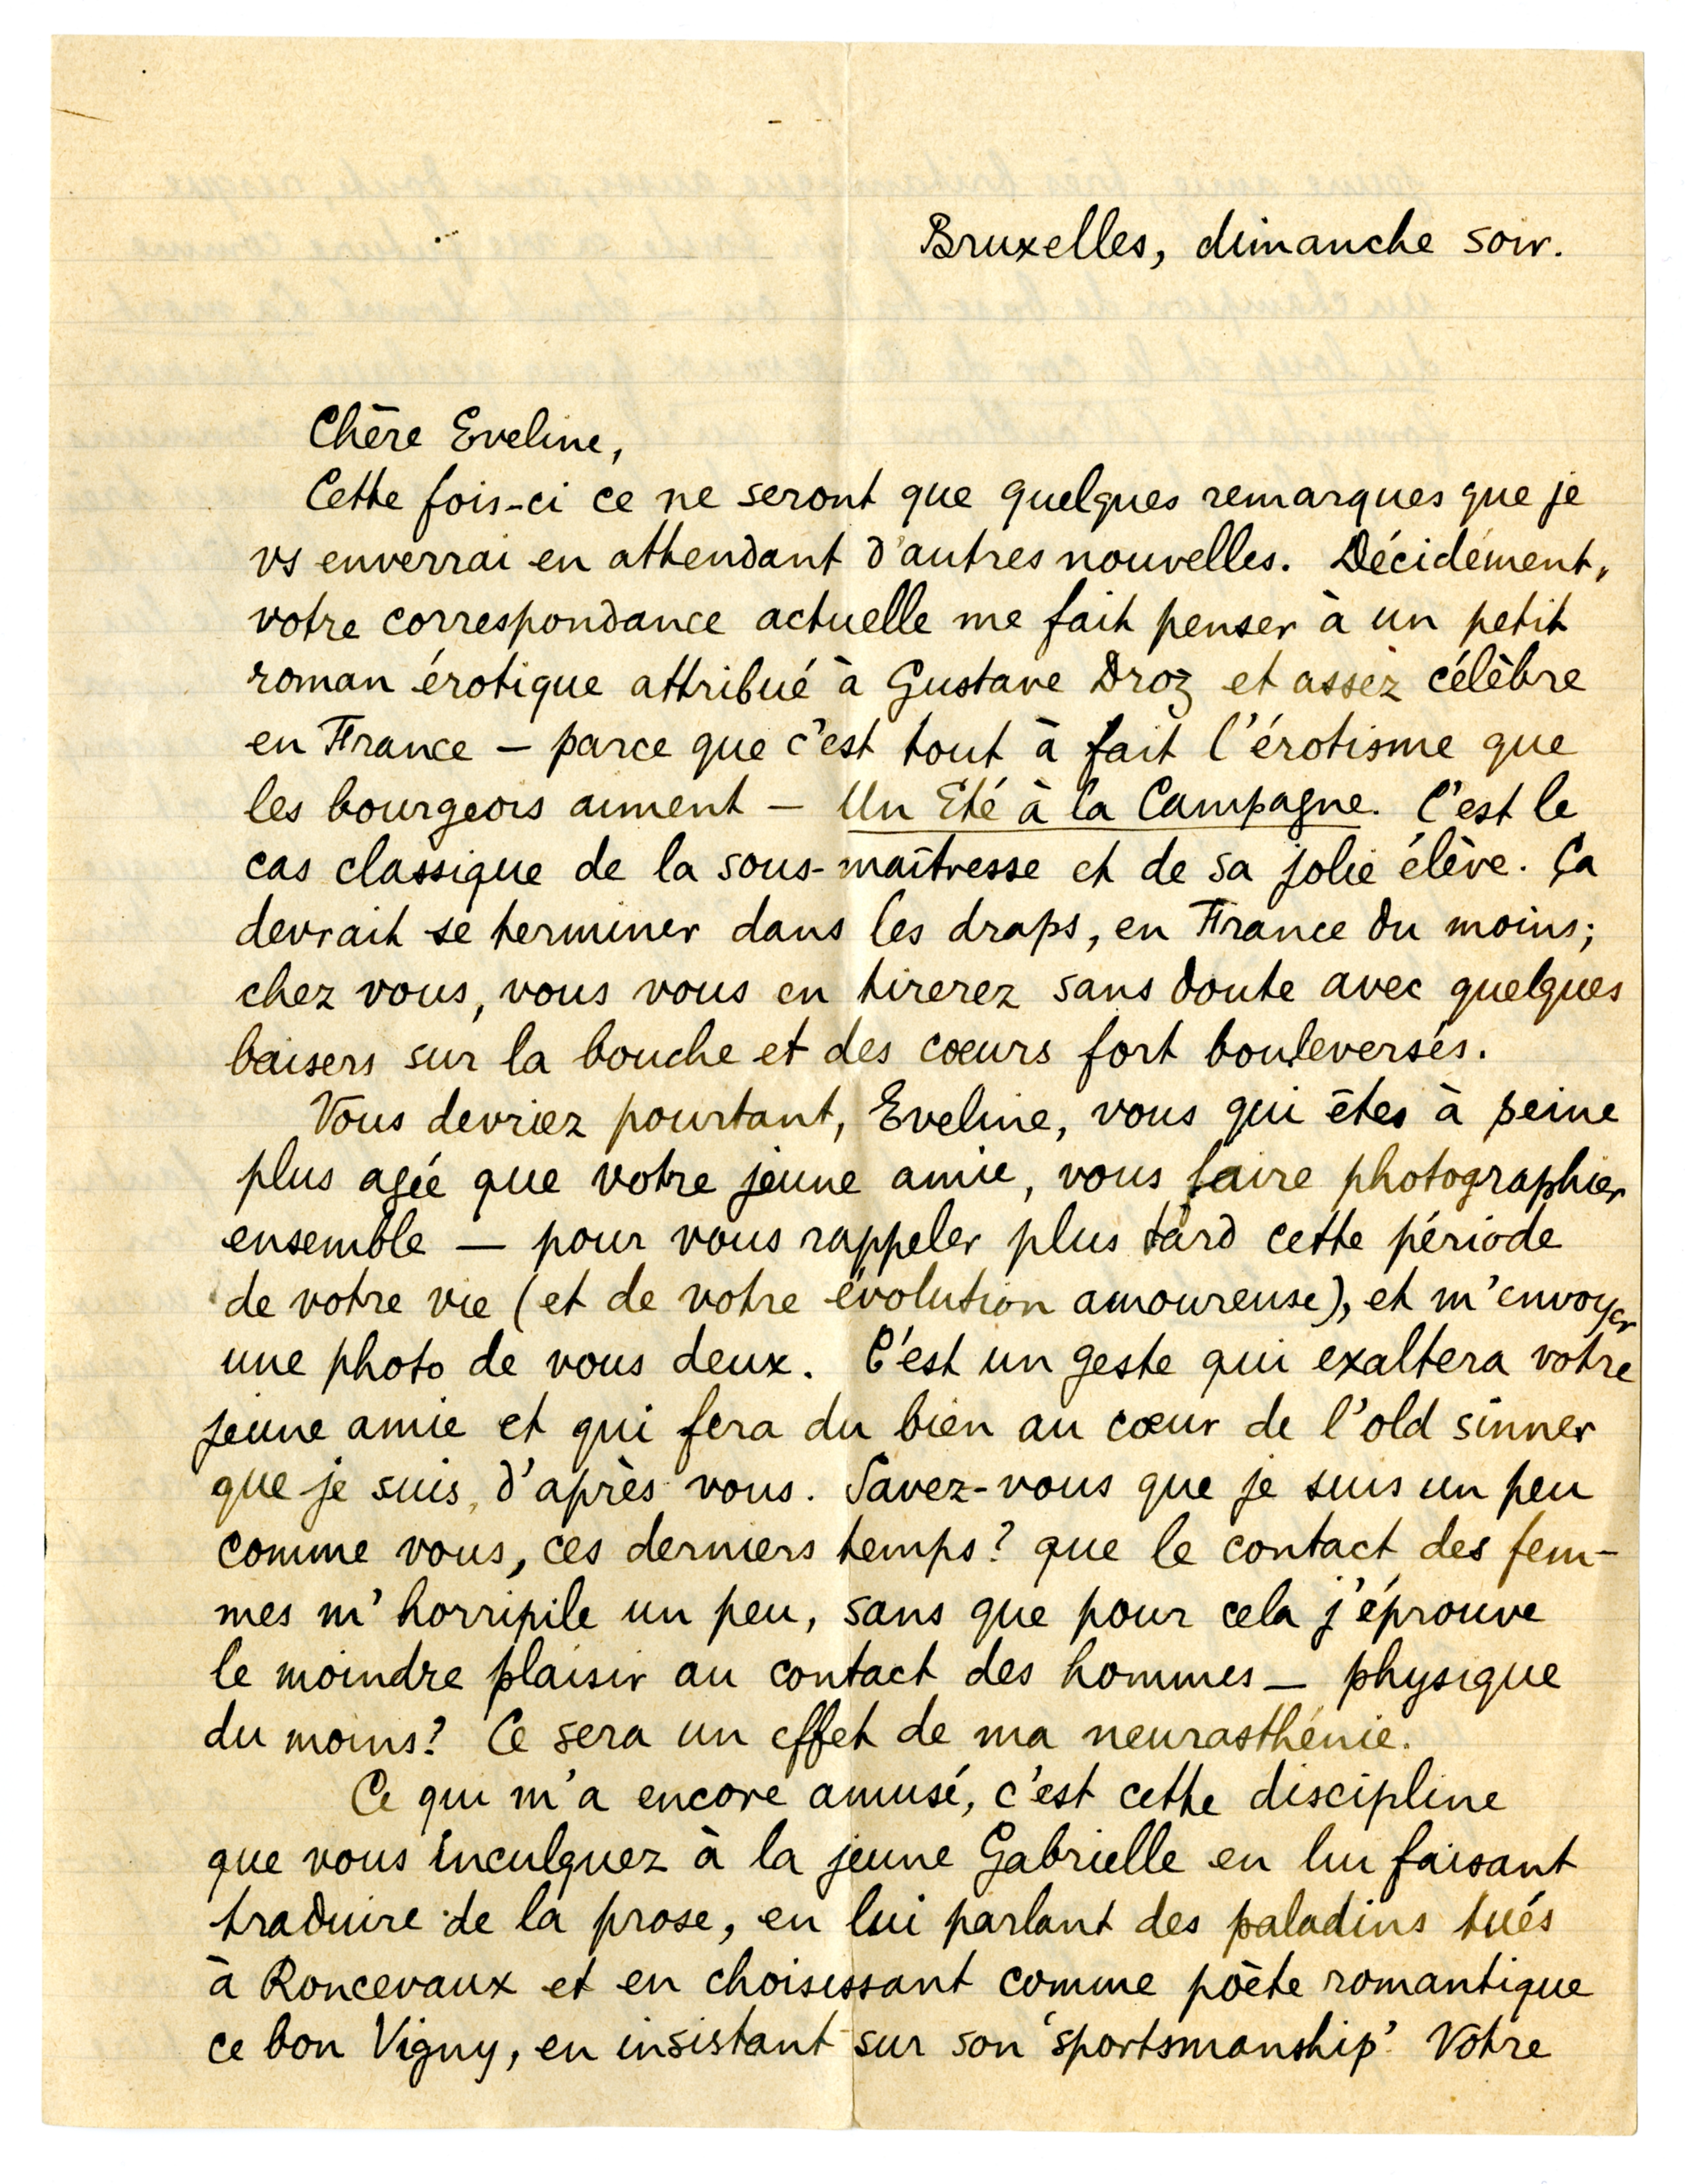 Bruxelles, dimanche soir.
Chère Eveline,
Cette fois-ci ce ne seront que quelques remarques que je
vs enverrai en attendant d'autres nouvelles. Décidément,
votre correspondance actuelle me fait penser à un petit
roman érotique attribué à Gustave Droz et assez célèbre
en France – parce que c'est tout à fait l'érotisme que
les bourgeois aiment – Un Eté à la Campagne. C'est le
cas classique de la sous-maîtresse et de sa jolie élève. Ça
devrait se terminer dans les draps, en France du moins;
chez vous, vous vous en tirerez sans doute avec quelques
baisers sur la bouche et des cœurs fort bouleversés.
Vous devriez pourtant, Eveline, vous qui êtes à peine
plus agée que votre jeune amie, vous faire photographier
ensemble – pour vous rappeler plus tard cette période
de votre vie (et de votre évolution amoureuse), et m'envoyer
une photo de vous deux. C'est un geste qui exaltera votre
jeune amie et qui fera du bien au cœur de l'old sinner
que je suis, d'après vous. Savez-vous que je suis un peu
comme vous, ces derniers temps? que le contact des fem-
mes m'horripile un peu, sans que pour cela j'éprouve
le moindre plaisir au contact des hommes – physique
du moins? Ce sera un effet de ma neurasthénie.
Ce qui m'a encore amusé, c'est cette discipline
que vous inculquez à la jeune Gabrielle en lui faisant
traduire de la prose, en lui parlant des paladins tués
à Roncevaux et en choisissant comme poète romantique
ce bon Vigny, en insistant sur son 'sportsmanship'. Votre